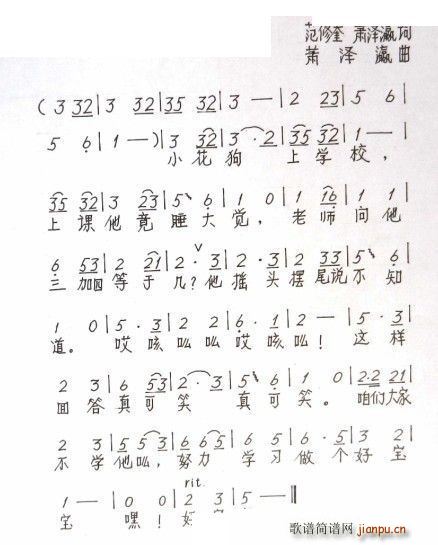 范修奎 萧泽瀛词
萧泽瀛曲
( 3 32 | 3 32 | 35 32 | 3 — | 2 23 | 5 6 |
5 6 | 1 — ) | 3 32 | 3 · 2 | 35 32 | 1 — |
小花狗 上学校,
35 32 | 3 23 | 5 6 | 1 0 | 1 16 | 1 1 |
上课他竟睡大觉, 老师问他
6 53 | 2 21 | 2 · 3 | 2 · 3 | 2 33 | 5 6 |
三加四等于几?他摇头摆尾说不知
1 0 | 5 · 3 | 2 2 | 6 · 1 | 2 — | 5 · 3 |
道。 哎咳吆吆哎咳吆! 这样
2 3 | 6 53 | 2 · 3 | 5 6 | 1 0 | 2·2 21 |
回答真可笑 真可笑。 咱们大家
2 3 | 5 5 3 | 6 6 5 | 6 5 | 6 · 5 | 3 2 |
不学他吆,努力 学习做个好宝
rit.
1 — | 0 0 | 2 3 | 5 — ‖
宝 嘿!好
歌谱简谱网
jianpu.cn